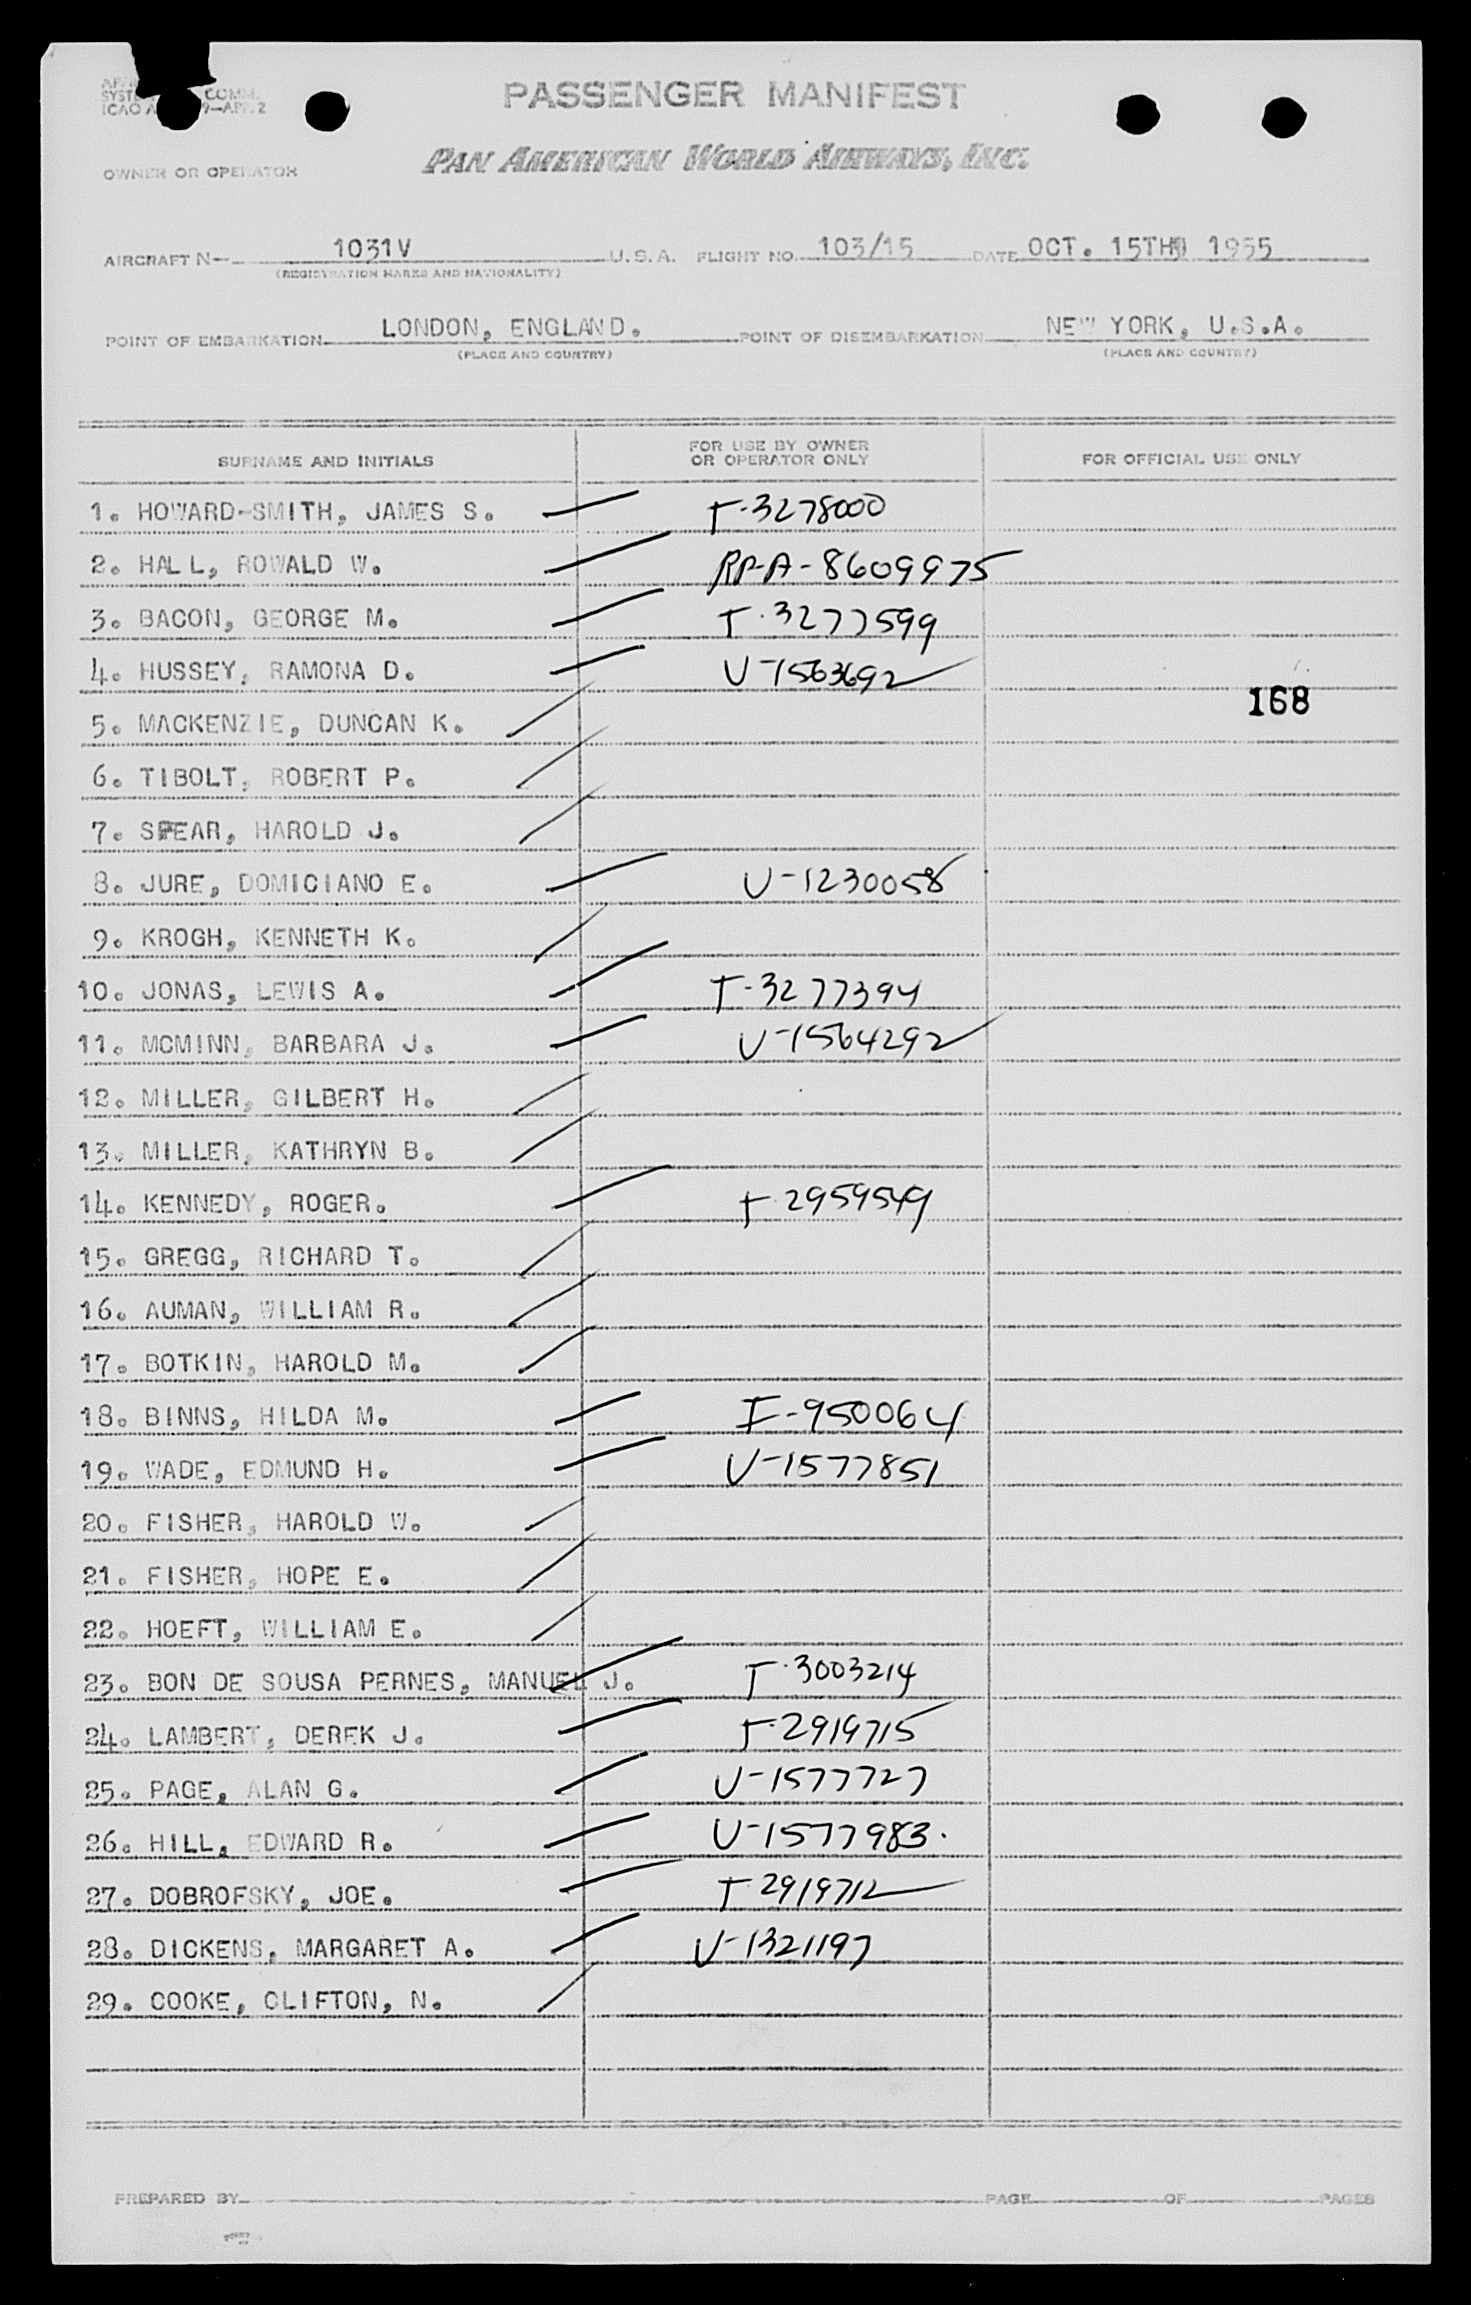 PASSENGER MANIFEST
PAN AMERICAN WORLD AIRWAYS, INC.
OWNER OR OPERATOR
AIRCRAFT N- 1031V U.S.A. FLIGHT NO. 103/15 DATE OCT. 15TH 1955
(REGISTRATION MARKS AND NATIONALITY)
POINT OF EMBARKATION LONDON, ENGLAND. POINT OF DISEMBARKATION NEW YORK, U.S.A.
(PLACE AND COUNTRY) (PLACE AND COUNTRY)
SURNAME AND INITIALS FOR USE BY OWNER OR OPERATOR ONLY FOR OFFICIAL USE ONLY
1. HOWARD-SMITH, JAMES S. T-3278000
2. HALL, ROWALD W. RP-A-8609975
3. BACON, GEORGE M. T-3277599
4. HUSSEY, RAMONA D. V-1563692
168
5. MACKENZIE, DUNCAN K.
6. TIBOLT, ROBERT P.
7. SPEAR, HAROLD J.
8. JURE, DOMICIANO E. V-1230058
9. KROGH, KENNETH K.
10. JONAS, LEWIS A. T-3277394
11. MCMINN, BARBARA J. V-1564292
12. MILLER, GILBERT H.
13. MILLER, KATHRYN B.
14. KENNEDY, ROGER. T-2959549
15. GREGG, RICHARD T.
16. AUMAN, WILLIAM R.
17. BOTKIN, HAROLD M.
18. BINNS, HILDA M. I-950064
19. WADE, EDMUND H. V-1577851
20. FISHER, HAROLD W.
21. FISHER, HOPE E.
22. HOEFT, WILLIAM E.
23. BON DE SOUSA PERNES, MANUEL J. T-3003214
24. LAMBERT, DEREK J. T-2919715
25. PAGE, ALAN G. V-1577727
26. HILL, EDWARD R. V-1577983.
27. DOBROFSKY, JOE. T-2919712
28. DICKENS, MARGARET A. V-1321197
29. COOKE, CLIFTON, N.
PREPARED BY PAGE OF PAGES